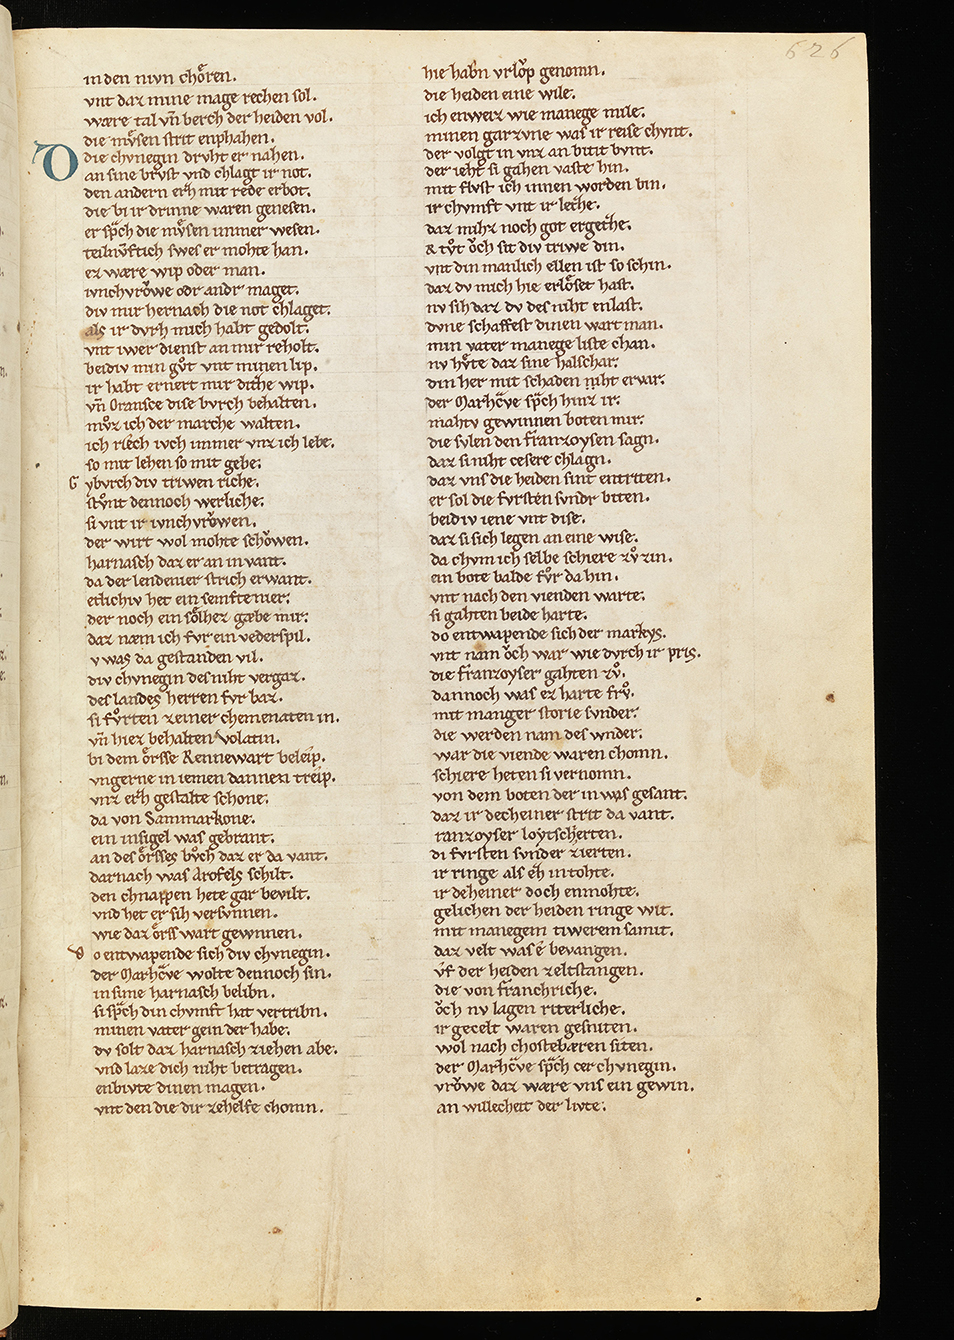 626
in den nivn chôren.
vnt daz mine mage rechen sol.
wære tal vñ berch der heiden vol.
die mv̊sen strit enphahen.
D die chvnegin drvht er nahen.
an sine brvst vnd chlagt ir not.
den andern erh mit rede erbot.
die bi ir drinne waren genesen.
er sp̃ch die mv̊sen immer wesen.
teilnv̊ftich swes er mohte han.
ez wære wip oder man.
ivnchvrôwe odr andr maget.
div mir hernach die not chlaget.
als ir dvrh mich habt gedolt.
vnt iwer dienst an mir reholt.
beidiv min gv̊t vnt minen lip.
ir habt ernert mir dithe wip.
vñ Oransce dise bvrch behalten.
mv̊z ich der marche walten.
ich riech ivch immer vnz ich lebe.
so mit lehen so mit gebe.
G ybvrch div triwen riche.
stv̊nt dennoch werliche.
si vnt ir ivnchvrôwen.
der wirt wol mohte schôwen.
harnasch daz er an in vant.
da der lendenier strich erwant.
etlichiv het ein semftenier.
der noch ein sôlhez gæbe mir.
daz næm ich fvr ein vederspil.
v was da gestanden vil.
div chvnegin des niht vergaz.
des landes herren fvr baz.
si fv̊rten zeiner chemenaten in.
vñ hiez behalten volatin.
bi dem ôrsse Rennewart beleip.
vngerne in iemen dannen treip.
vnz erh gestalte schone.
da von Sammarkone.
ein insigel was gebrant.
an des ôrsses bv̊ch daz er da vant.
darnach was Arofels schilt.
den chnappen hete gar bevilt.
vnd het er sih versvnnen.
wie daz ôrss wart gewnnen.
D o entwapende sich div chvnegin.
der Marhcͣve wolte dennoch sin.
in sime harnasch belibn.
si sp̃ch din chvmft hat vertribn.
minen vater gein der habe.
dv solt daz harnasch ziehen abe.
vnd laze dich niht betragen.
enbivte dinen magen.
vnt den die dir zehelfe chomn.
hie habn vrlôp genomn.
die heiden eine wile.
ich enweiz wie manege mile.
minen garzvne was ir reise chvnt.
der volgt in vnz an bitit bvnt.
der ieht si gahen vaste hin.
mit flvst ich innen worden bin.
ir chvmft vnt ir lethe.
daz mihz noch got ergethe.
& tv̊t ôch sit div triwe din.
vnt din manlich ellen ist so schin.
daz dv mich hie erlôset hast.
nv sih daz dv des niht enlast.
dvne schaffest dinen wart man.
min vater manege liste chan.
nv hv̊te daz sine halschar.
din her mit schaden niht ervar.
der Marhcͣve sp̃ch hinz ir.
mahtv gewinnen boten mir.
die svlen den franzoysen sagn.
daz si niht cesere chlagn.
daz vns die heiden sint entriten.
er sol die fvrsten svndr biten.
beidiv iene vnt dise.
daz si sich legen an eine wise.
da chvm ich selbe schiere zv̊ zin.
ein bote balde fv̊r da hin.
vnt nach den vienden warte.
si gahten beide harte.
do entwapende sich der markys.
vnt nam ôch war wie dvrch ir pris.
die franzoyser gahten zv̊.
dannoch was ez harte frv̊.
mit manger storie svnder.
die werden nam des wnder.
war die viende waren chomn.
schiere heten si vernomn.
von dem boten der in was gesant.
daz ir decheiner strit da vant.
ranzoyser loytschierten.
di fvrsten svnder zierten.
ir ringe als eh in tohte.
ir deheiner doch enmohte.
gelichen der heiden ringe wit.
mit manegem tiwerem samit.
daz velt was ê bevangen.
v̂f der heiden zeltstangen.
die von franchriche.
ôch nv lagen riterliche.
ir gecelt waren gesniten.
wol nach chostebæren siten.
der Marhcͣve sp̃ch cer chvnegin.
vrôwe daz wære vns ein gewin.
an willecheit der livte.